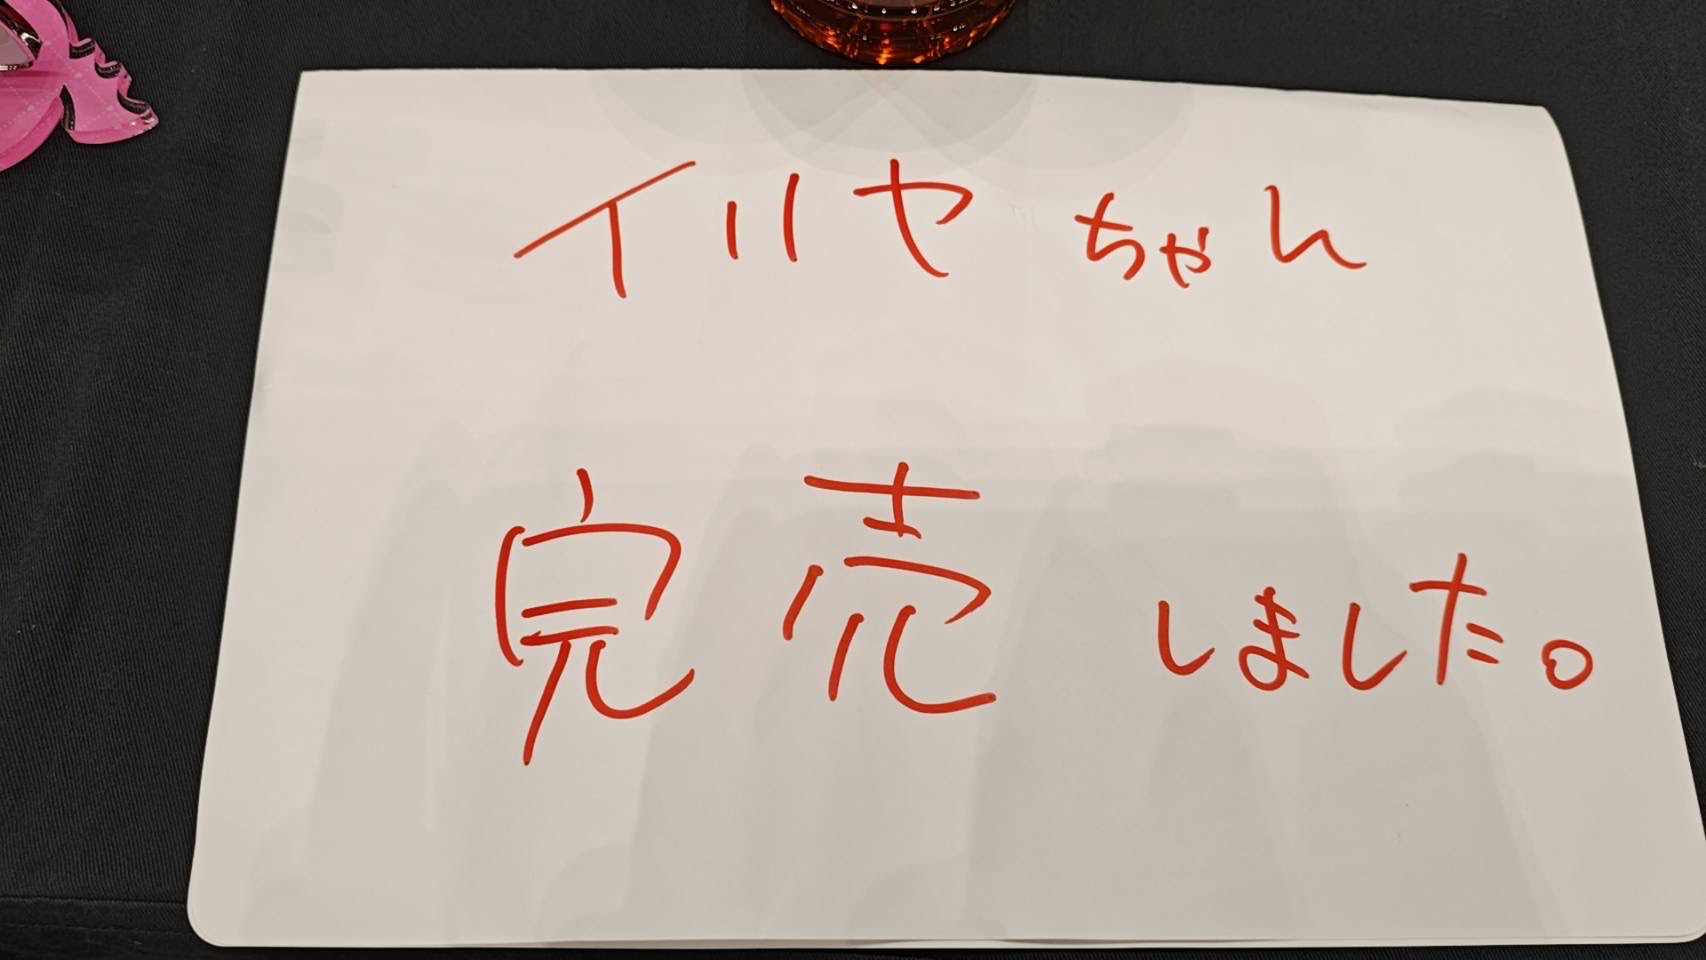 イリヤちゃん
完売しました。